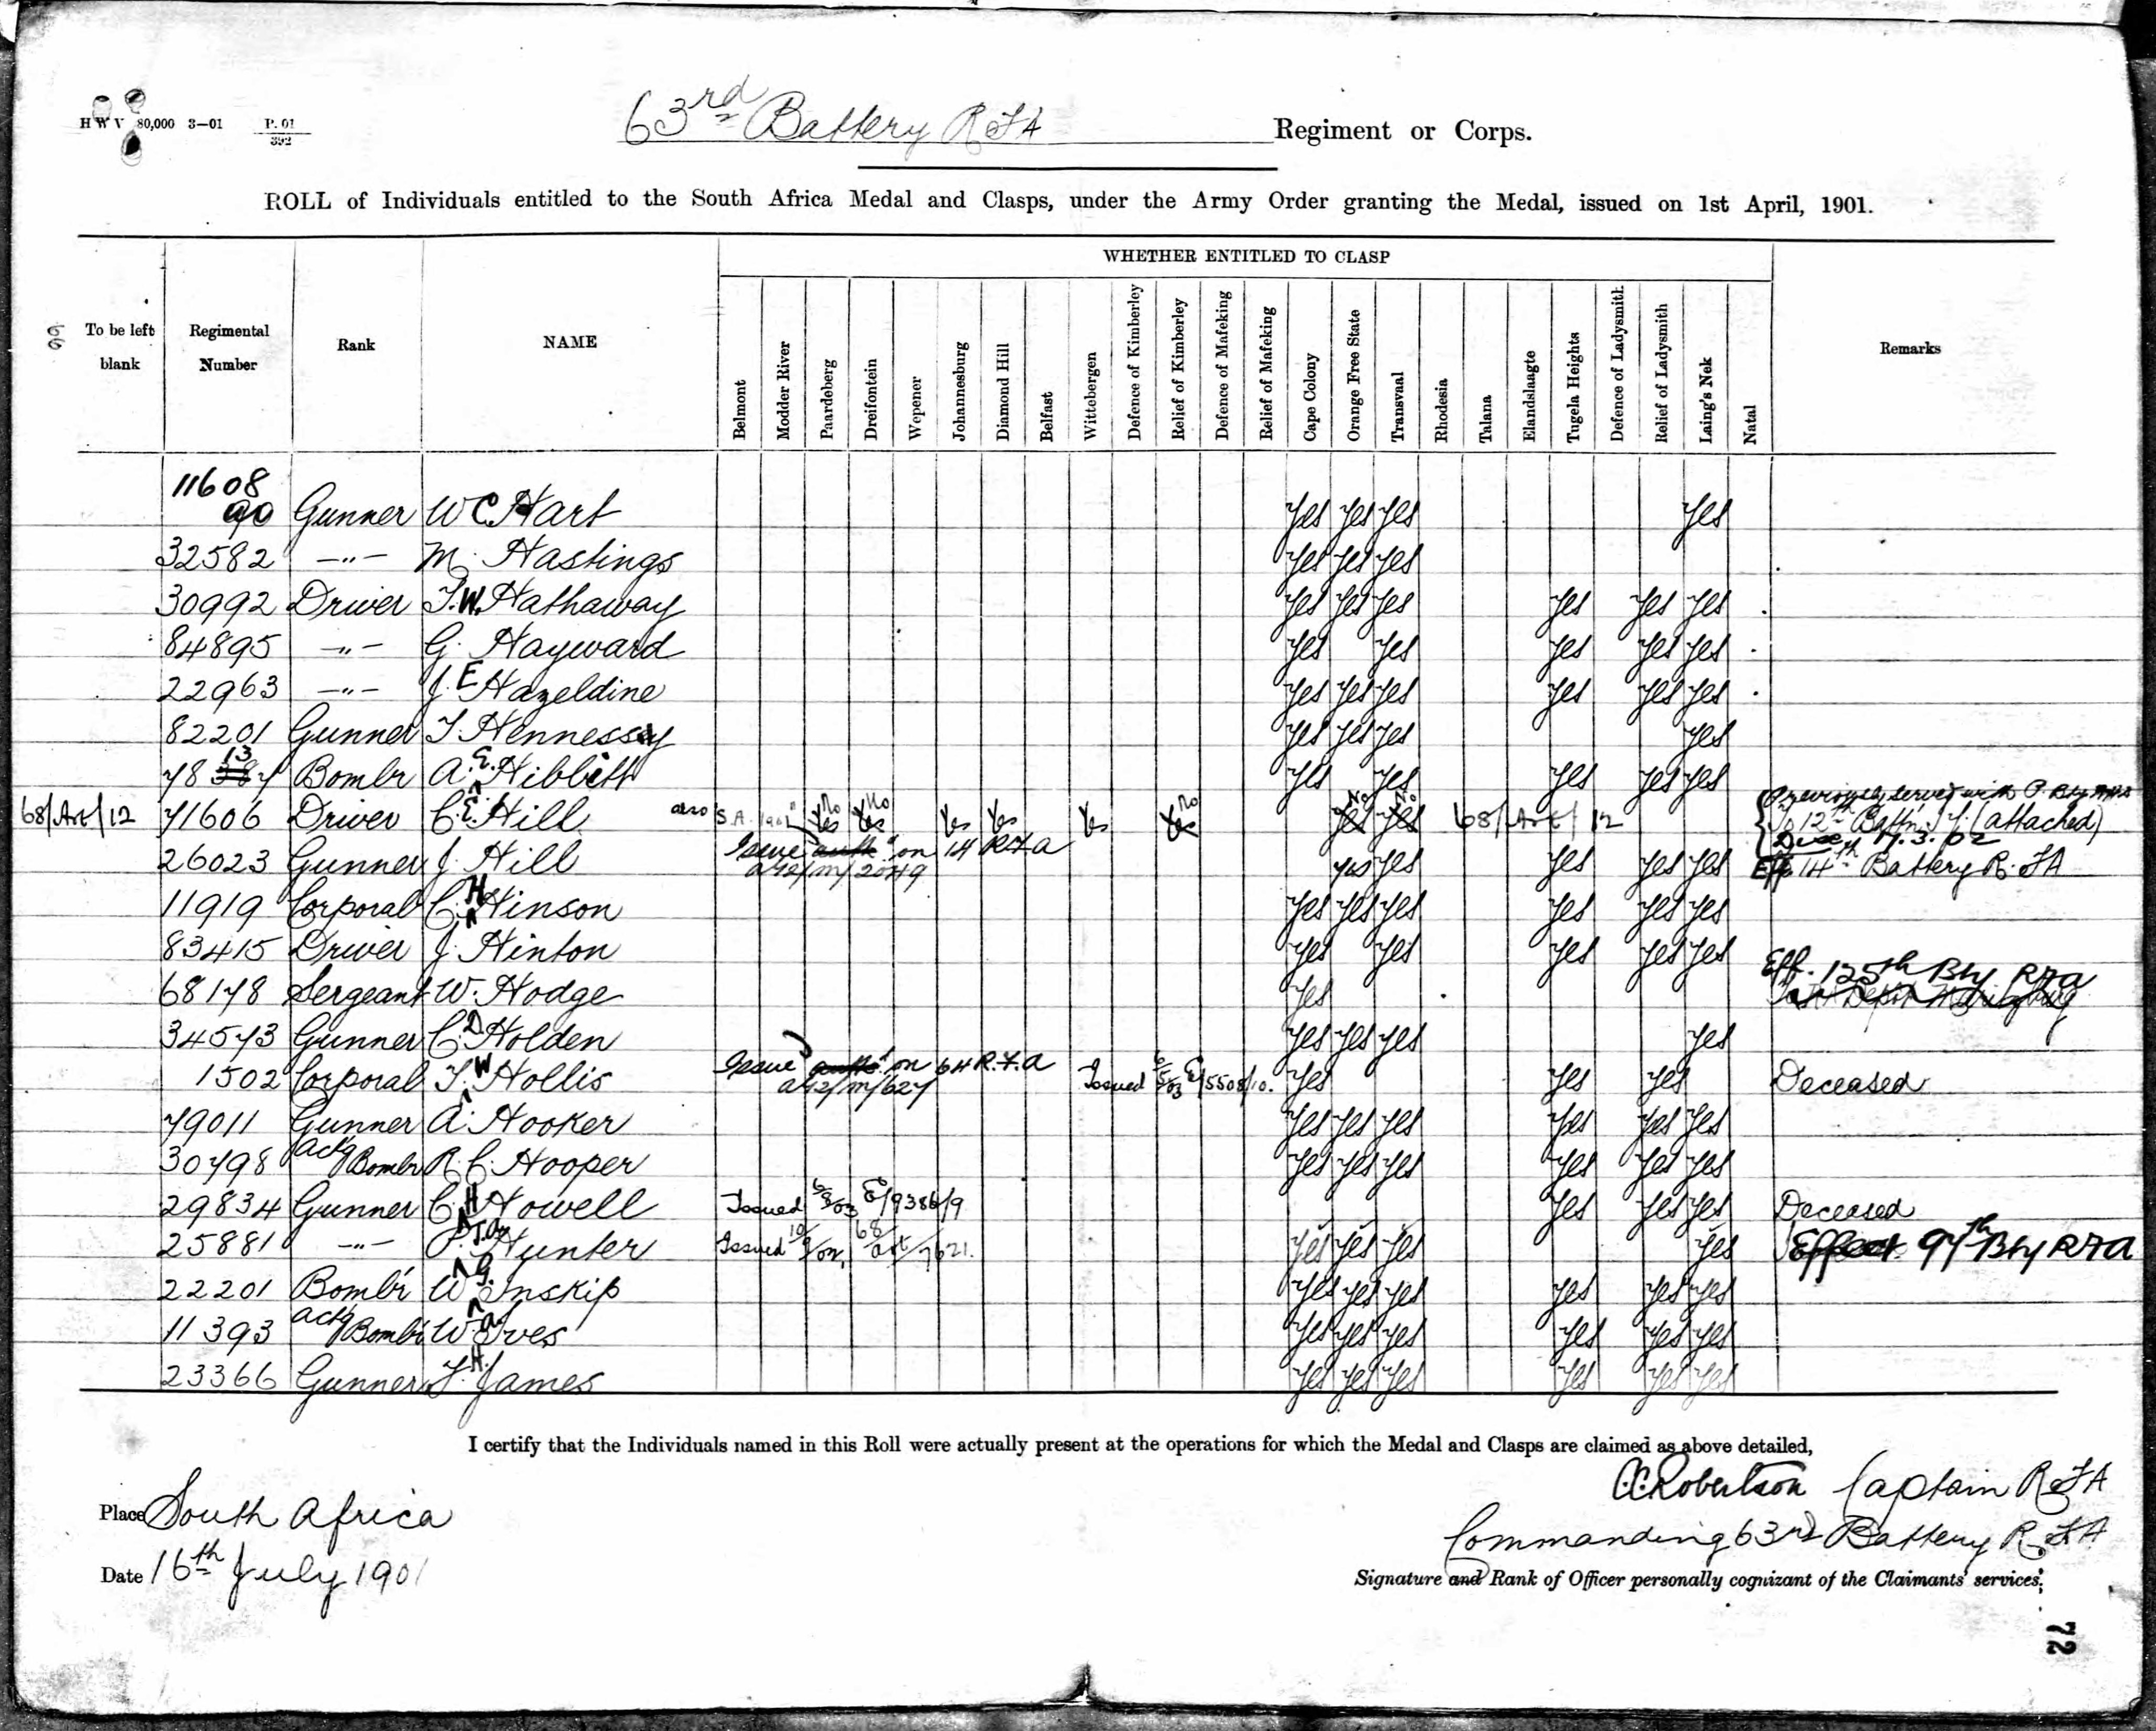 H W V 80,000 3—01 P. 01 / 392
63rd Battery RFA Regiment or Corps.
ROLL of Individuals entitled to the South Africa Medal and Clasps, under the Army Order granting the Medal, issued on 1st April, 1901.
WHETHER ENTITLED TO CLASP
To be left blank Regimental Number Rank NAME Belmont Modder River Paardeberg Dreifontein Wepener Johannesburg Diamond Hill Belfast Wittebergen Defence of Kimberley Relief of Kimberley Defence of Mafeking Relief of Mafeking Cape Colony Orange Free State Transvaal Rhodesia Talana Elandslaagte Tugela Heights Defence of Ladysmith Relief of Ladysmith Laing's Nek Natal Remarks
11608
90 Gunner W C. Hart Yes Yes Yes Yes
32582 —"— M. Hastings Yes Yes Yes
30992 Driver T.W. Hathaway Yes Yes Yes Yes Yes Yes
84895 —"— G. Hayward Yes Yes Yes Yes Yes
22963 —"— J. E Hazeldine Yes Yes Yes Yes Yes Yes
82201 Gunner T. Hennessy Yes Yes Yes Yes
13
78 Bombr A. E. Hibbitt Yes Yes Yes Yes Yes
68/Art/12 71606 Driver C. E. Hill also S.A. 1901 No Yes No Yes Yes Yes Yes No Yes No Yes No Yes 68/Art/12 Previously served with P. Bty RHA
To 12th Battn. (attached)
17.3.02
26023 Gunner J. Hill Issue auth on 14 RFA Yes Yes Yes Yes Yes Eff 14th Battery R.FA
a42/M/2049
11919 Corporal C. H Hinson Yes Yes Yes Yes Yes Yes
83415 Driver J. Hinton Yes Yes Yes Yes Yes
Eff. 125th Bty RFA
68178 Sergeant W. Hodge Yes
34573 Gunner C. D Holden Yes Yes Yes Yes
Issue auth on 64 R.F.A
1502 Corporal T. W Hollis a42/M/627 Issued 6/5/03 E/5508/10. Yes Yes Yes Deceased
79011 Gunner A. Hooker Yes Yes Yes Yes Yes Yes
30798 actg Bombr R. C. Hooper Yes Yes Yes Yes Yes Yes
29834 Gunner C. H Howell Issued 6/8/03 E/9386/9 Yes Yes Yes Deceased
25881 —"— Hunter Issued 10/ 68/Art/7621. Yes Yes Yes Yes Effect. 97th Bty RFA
22201 Bombr W. G. Inskip Yes Yes Yes Yes Yes Yes
11393 actg Bombr W. a. Ives Yes Yes Yes Yes Yes Yes
23366 Gunner T. H. James Yes Yes Yes Yes Yes Yes
I certify that the Individuals named in this Roll were actually present at the operations for which the Medal and Clasps are claimed as above detailed,
C.C. Robertson Captain RFA
Place South Africa
Commanding 63rd Battery R.F.A
Date 16th July 1901
Signature and Rank of Officer personally cognizant of the Claimants' services.
72